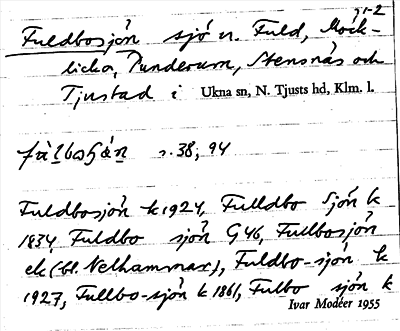 51-2
Fuldbosjön sjö n. Fuld, Möck-
licka, Punderum, Stensnäs och
Tjustad i Ukna sn, N. Tjusts hd, Klm. l.
s. 38, 94
Fuldbosjön k 1924, Fulldbo Sjön k
1834 Fuldbo sjön G 46, Fullbosjön
ek (bl. Nelhammar), Fuldbo-sjön k
1927, Fullbo-sjön k 1861, Fulbo sjön k
Ivar Modéer 1955